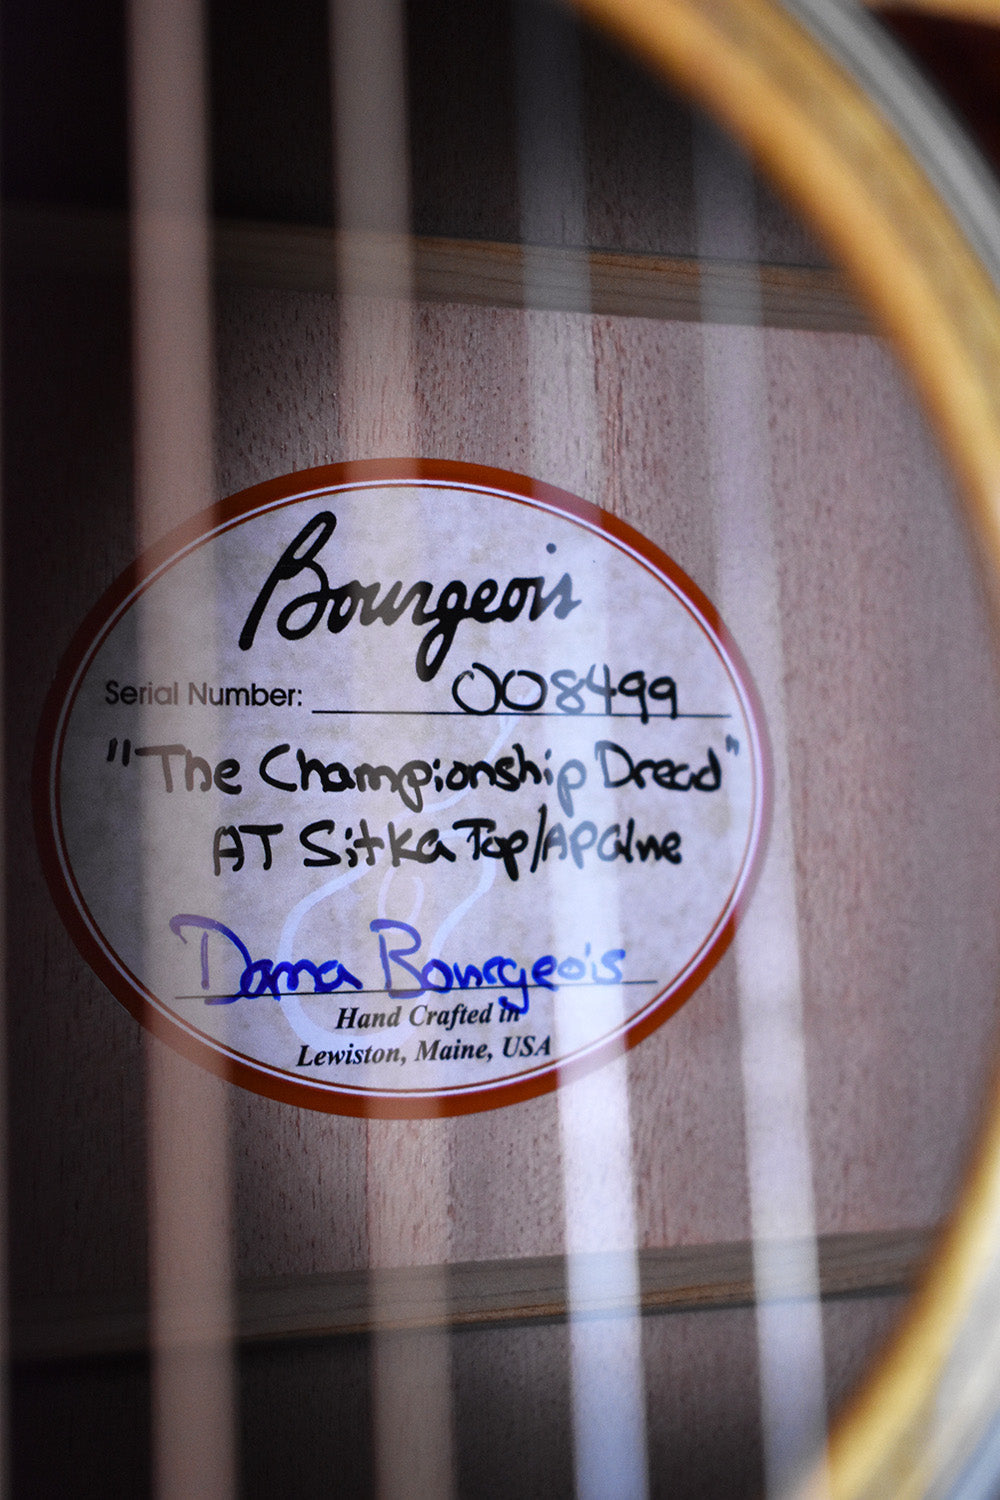 Bourgeois
Serial Number: 008499
"The Championship Dread"
AT Sitka Top/APAlne
Dana Bourgeois
Hand Crafted in
Lewiston, Maine, USA